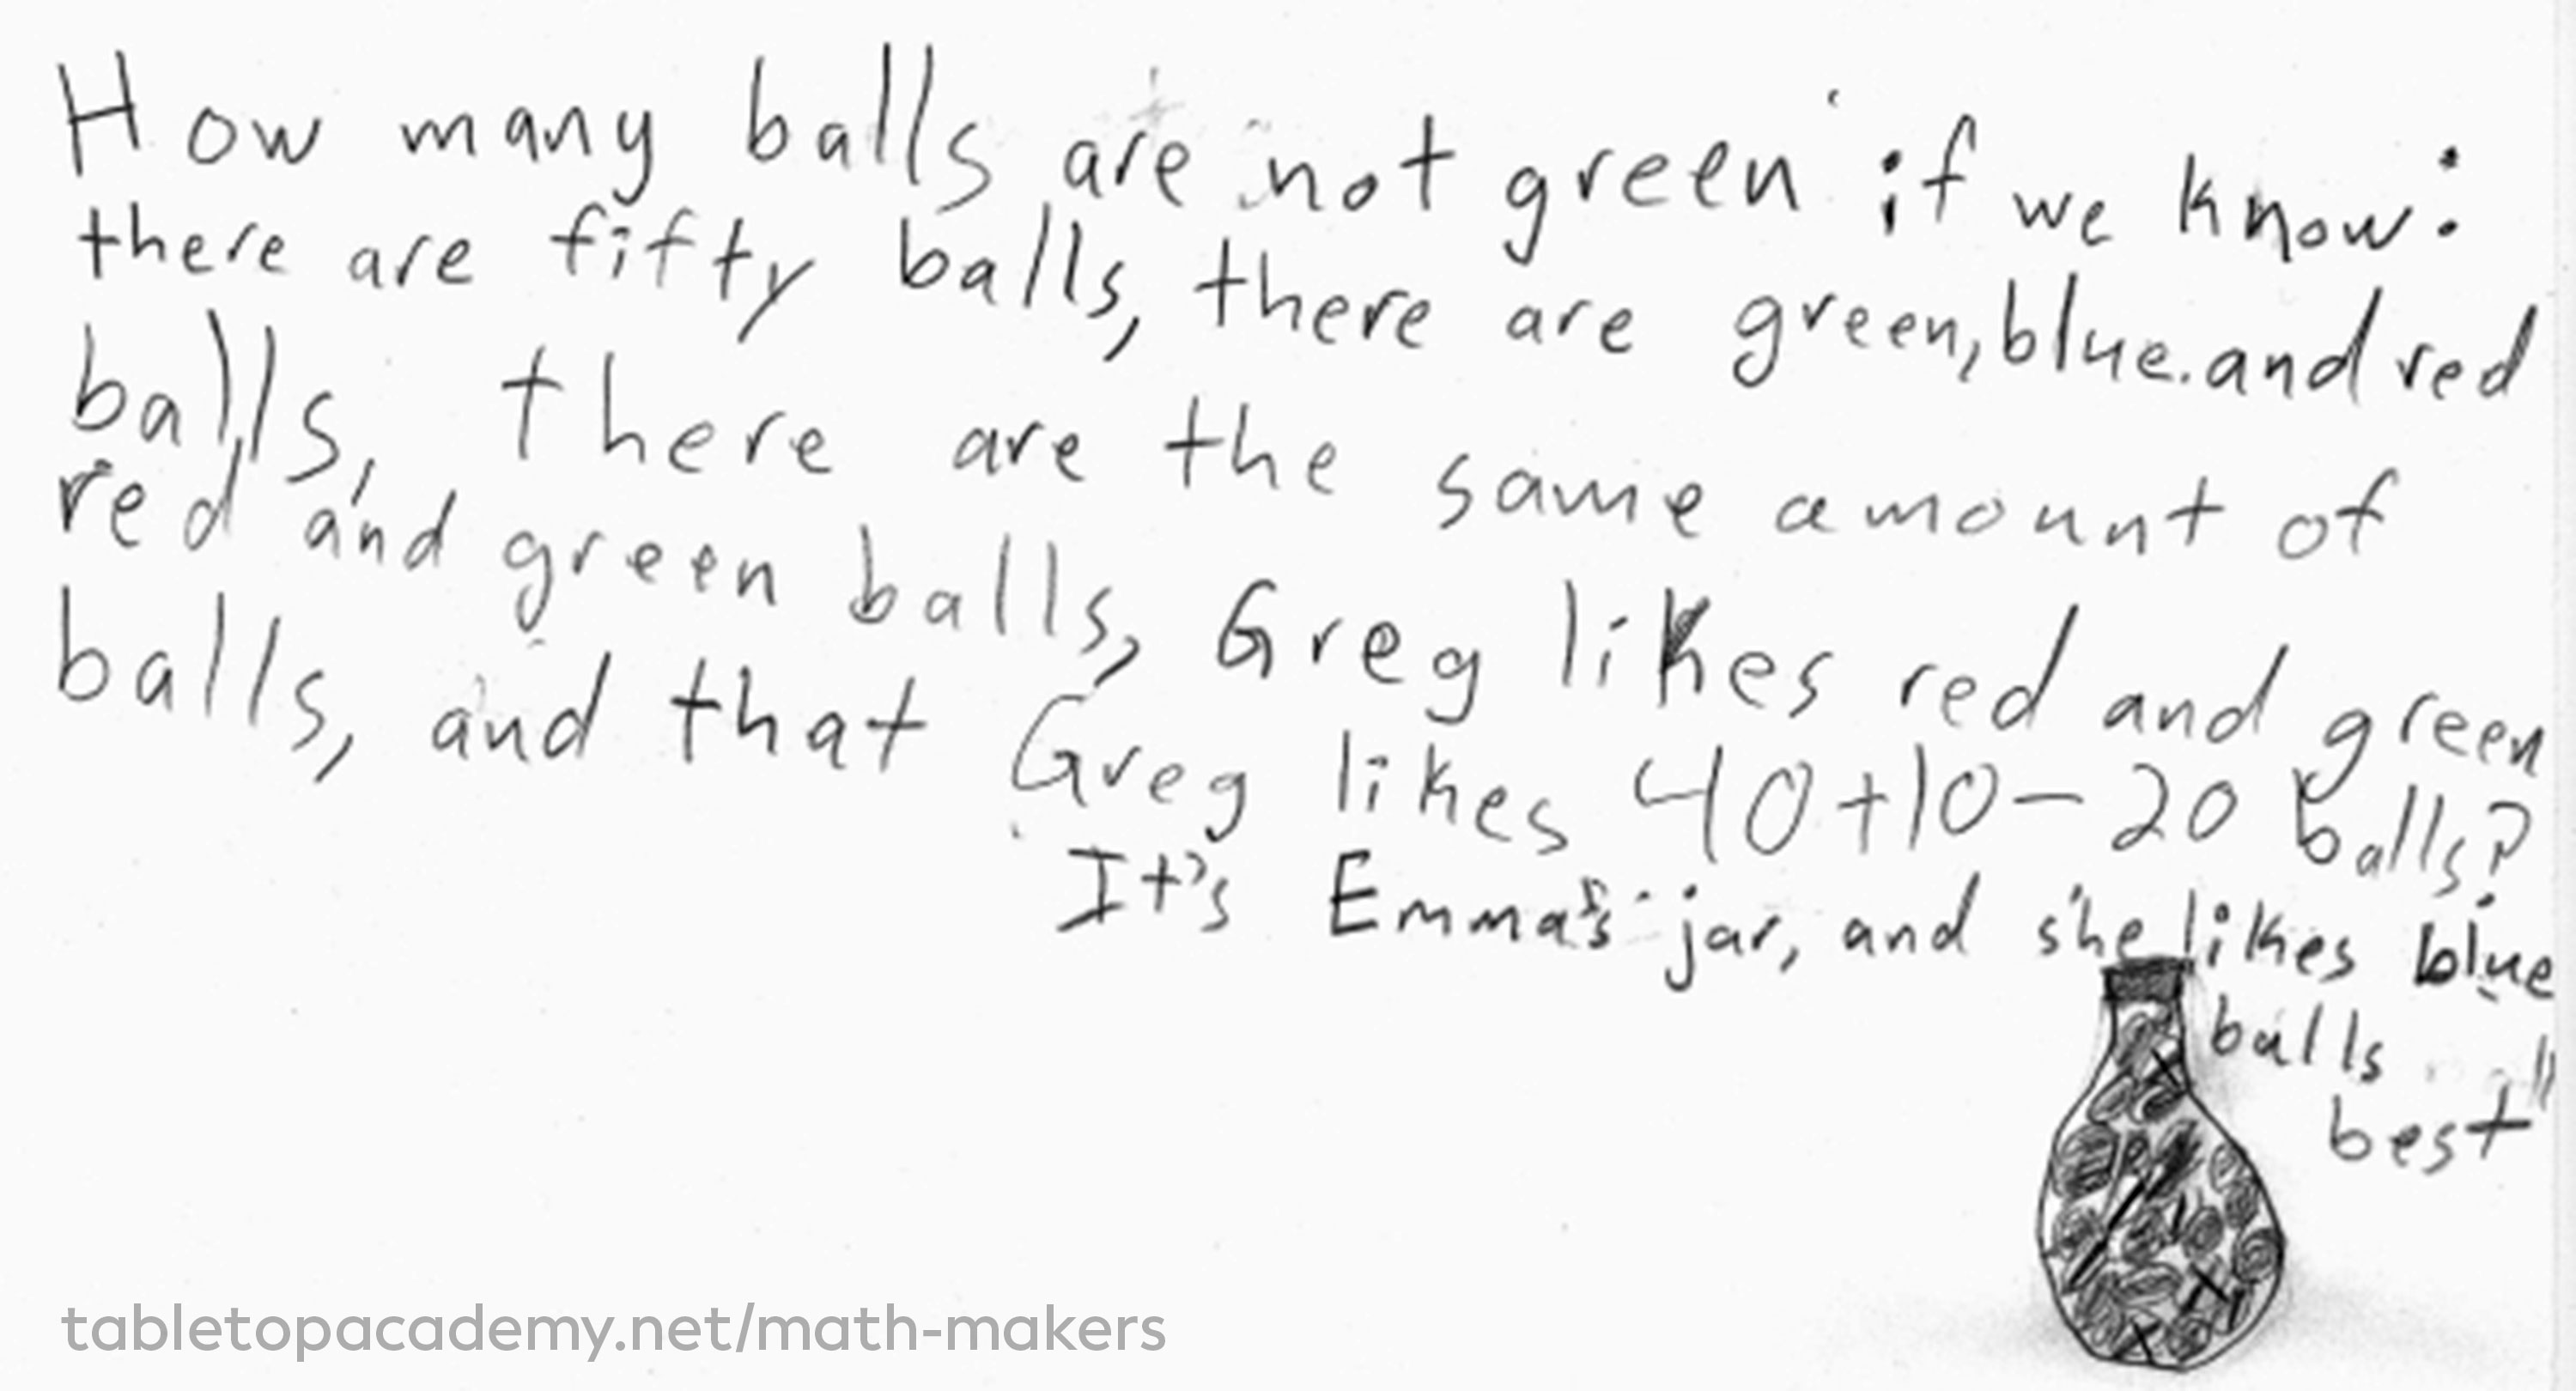 How many balls are not green if we know:
there are fifty balls, there are green, blue. and red
balls, there are the same amount of
red and green balls, Greg likes red and green
balls, and that Greg likes 40+10-20 balls?
It's Emma's jar, and she likes blue
balls
best"
tabletopacademy.net/math-makers